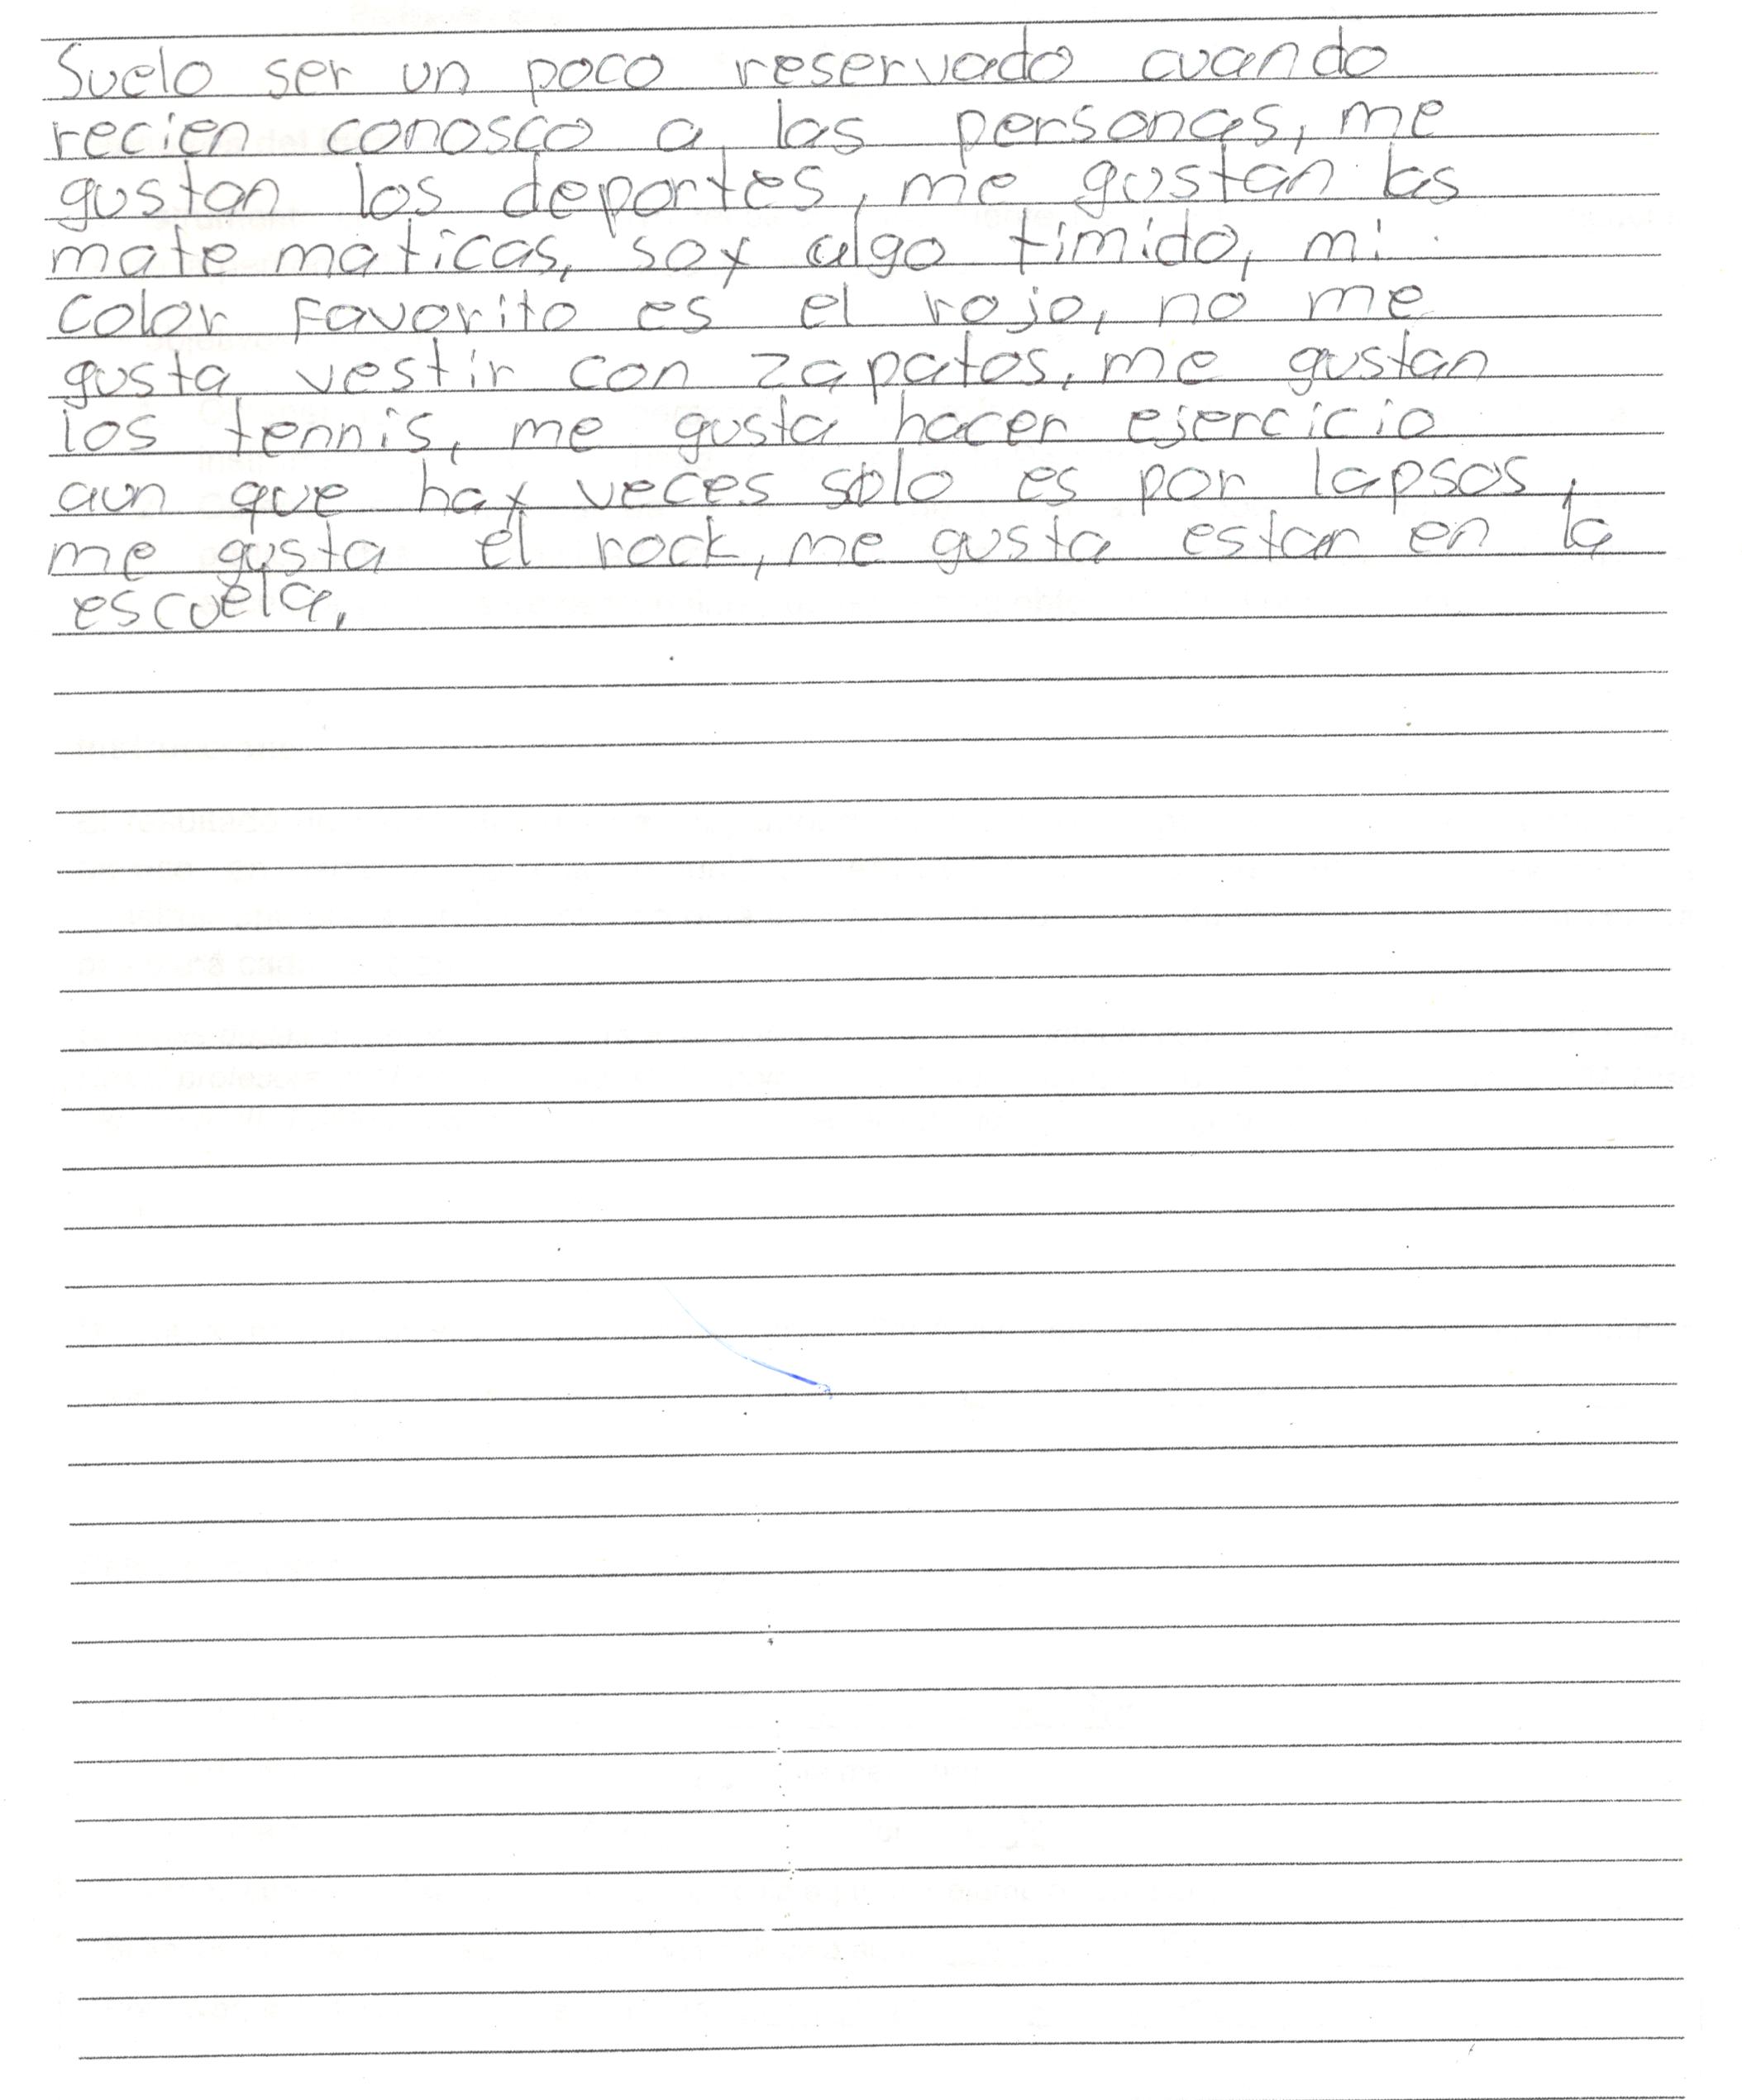 Suelo ser un poco reservado cuando
recien conosco a las personas, me
gustan los deportes, me gustan las
mate maticas, soy algo timido, mi
color favorito es el rojo, no me
gusta vestir con zapatos, me gustan
los tennis, me gusta hacer ejercicio
aun que hay veces solo es por lapsos,
me gusta el rock, me gusta estar en la
escuela.